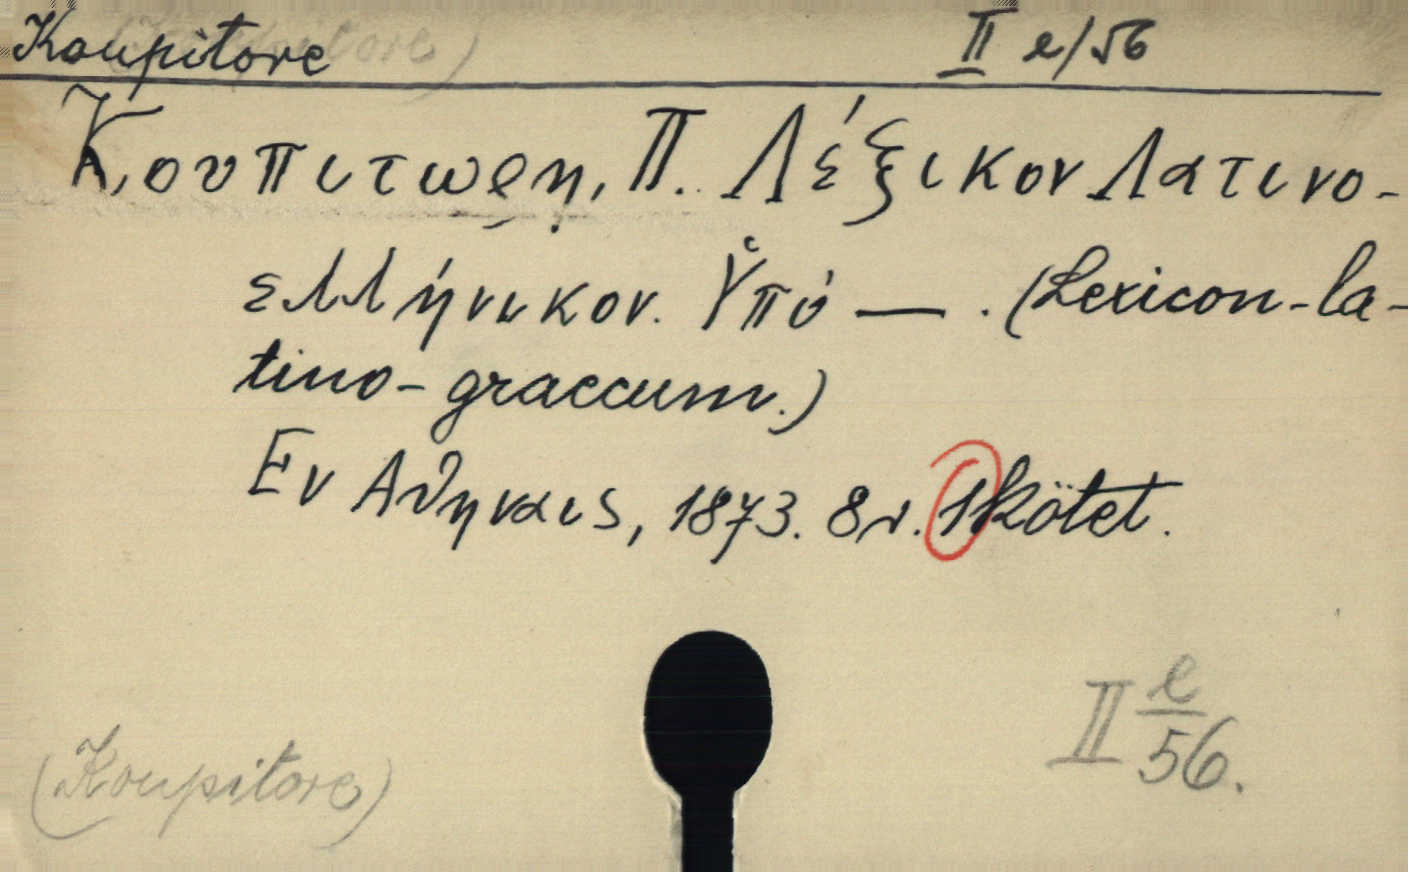 Koupitore II e/56
Κουπιτωρη, Π. Λέξικον Λατινο-
ελλήνικον. Ὑπό —. (Lexicon-la-
tino-graecum.)
Εν Αθηναις, 1873. 8r. 1 kötet.
II e/56.
(Koupitore)